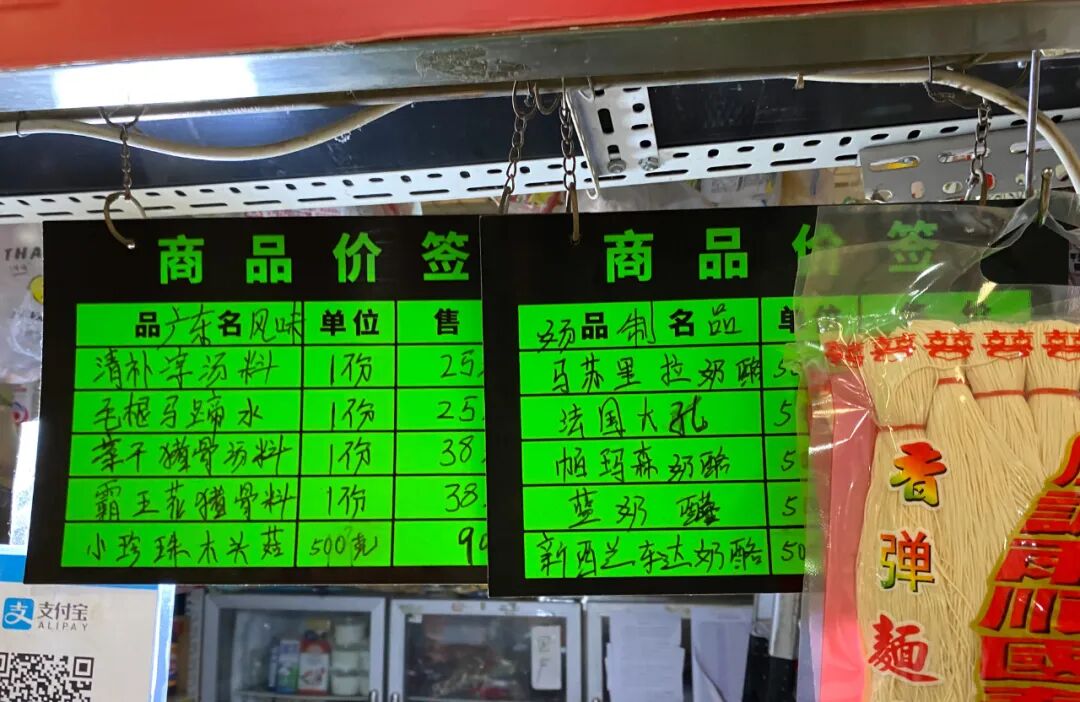 商品价签
品广东名风味 单位 售
清补凉汤料 1份 25
毛根马蹄水 1份 25
菜干猪骨汤料 1份 38
霸王花猪骨料 1份 38
小珍珠木头菇 500克 90
商品价签
奶品制名品 单位 价
马苏里拉奶酪 50
法国大孔 5
帕玛森奶酪 5
蓝奶酪 5
新西兰车达奶酪 50
支付宝
ALIPAY
THA
囍 囍 囍 囍 囍
者弹麵